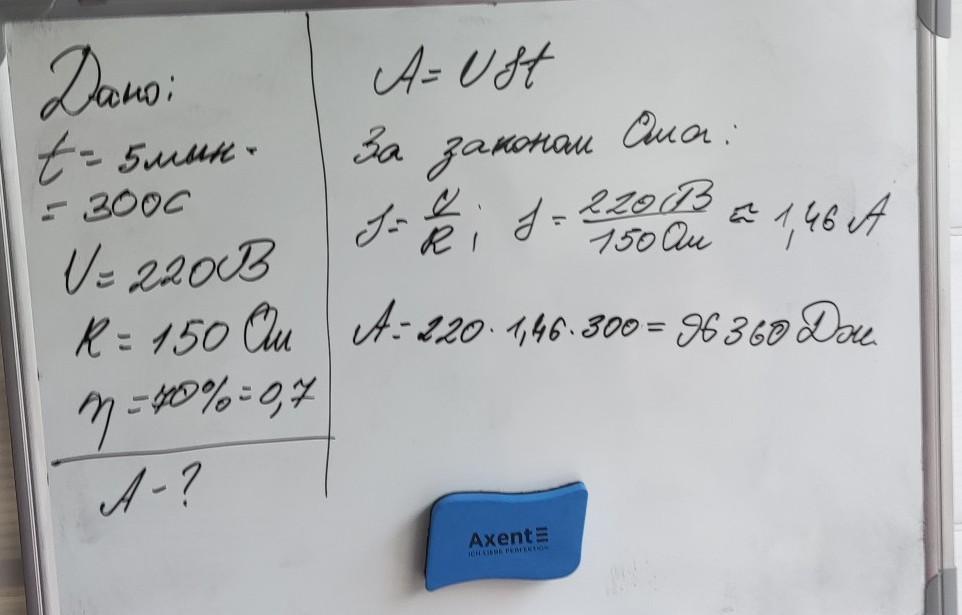 Дано:
t = 5мин.
= 300с
U = 220В
R = 150 Ом
η = 70% = 0,7
A - ?
A = UIt
За законом Ома:
I = U/R; I = 220В/150Ом ≈ 1,46 А
A = 220 · 1,46 · 300 = 96360 Дж
Axent
ICH LIEBE PERFEKTION